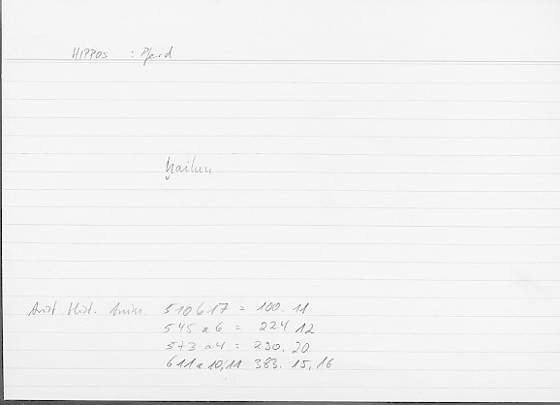 HIPPOS : Pferd
Arist. Hist. Anim. 510 b 17 = 100. 11
545 a 6 = 224 12
573 a 4 = 290. 20
611 a 10/11 383. 15, 16